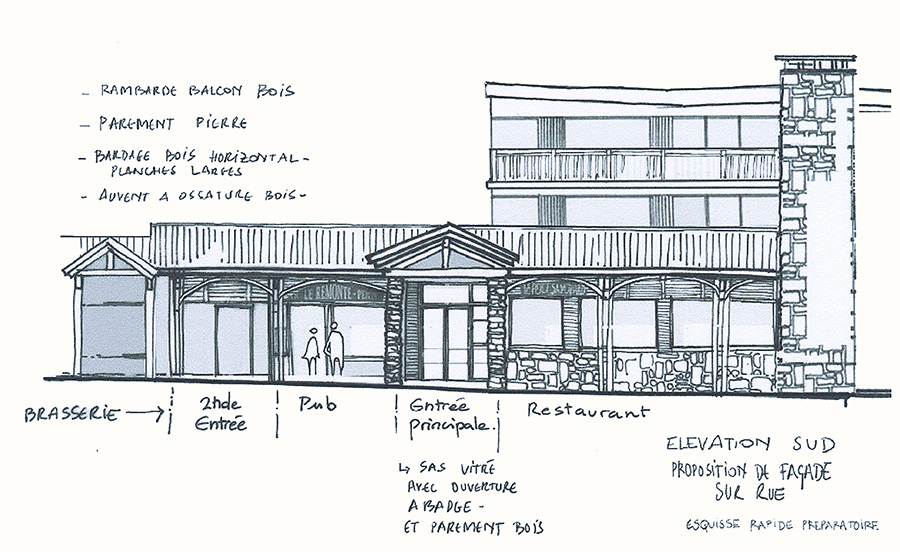 - RAMBARDE BALCON BOIS
- PAREMENT PIERRE
- BARDAGE BOIS HORIZONTAL -
PLANCHES LARGES
- AUVENT A OSSATURE BOIS -
LE REMONTE-PEN
BRASSERIE →
2nde
Entrée
Pub
Entrée
principale.
Restaurant
↳ SAS VITRÉ
AVEC OUVERTURE
A BADGE -
ET PAREMENT BOIS
ELEVATION SUD
PROPOSITION DE FAÇADE
SUR RUE
ESQUISSE RAPIDE PREPARATOIRE.